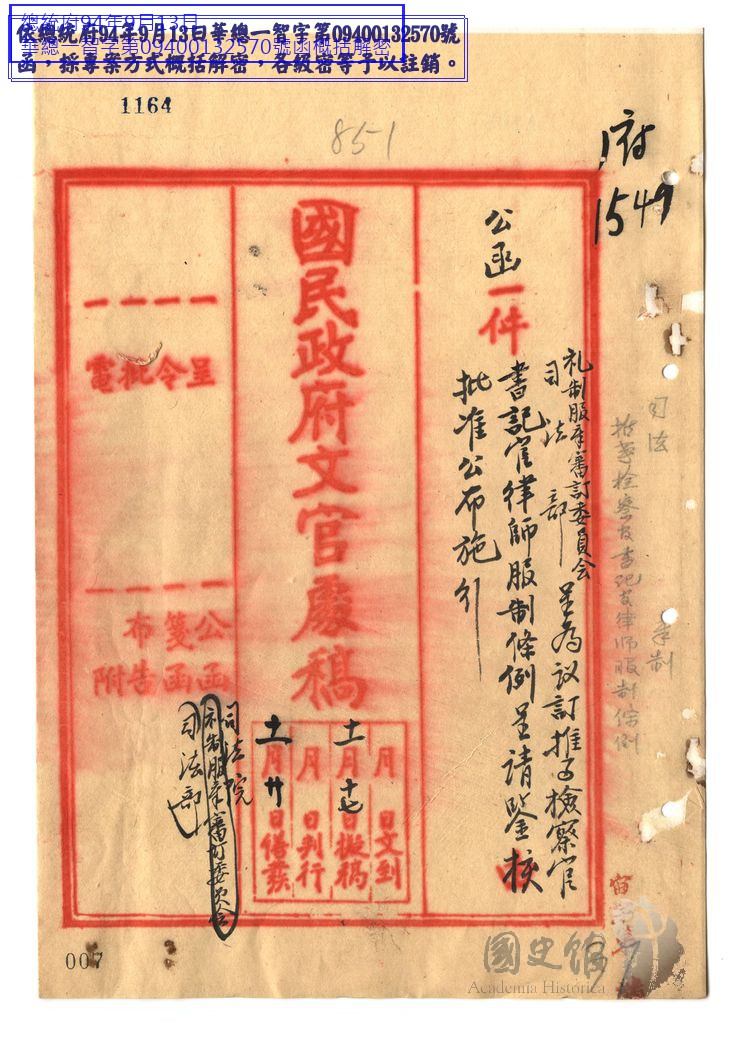 總統府94年9月13日
華總一智字第09400132570號函概括解密
依總統府94年9月13日華總一智字第09400132570號
函，採專案方式概括解密，各級密等予以註銷。
1164
851
府
1549
公函一件
礼制服章審訂委員会
司法部
呈為议訂推事檢察官
書記官律師服制條例呈請鑒核
批准公布施行
國民政府文官處稿
月 日文到
十一月十七日擬稿
月 日判行
十一月廿日繕發
呈
令
批
電
公函
箋函
布告
附
司法院
礼制服章審訂委員会
司法部
司法
推事检察官书记官律师服制條例
007
國史館
Academia Historica